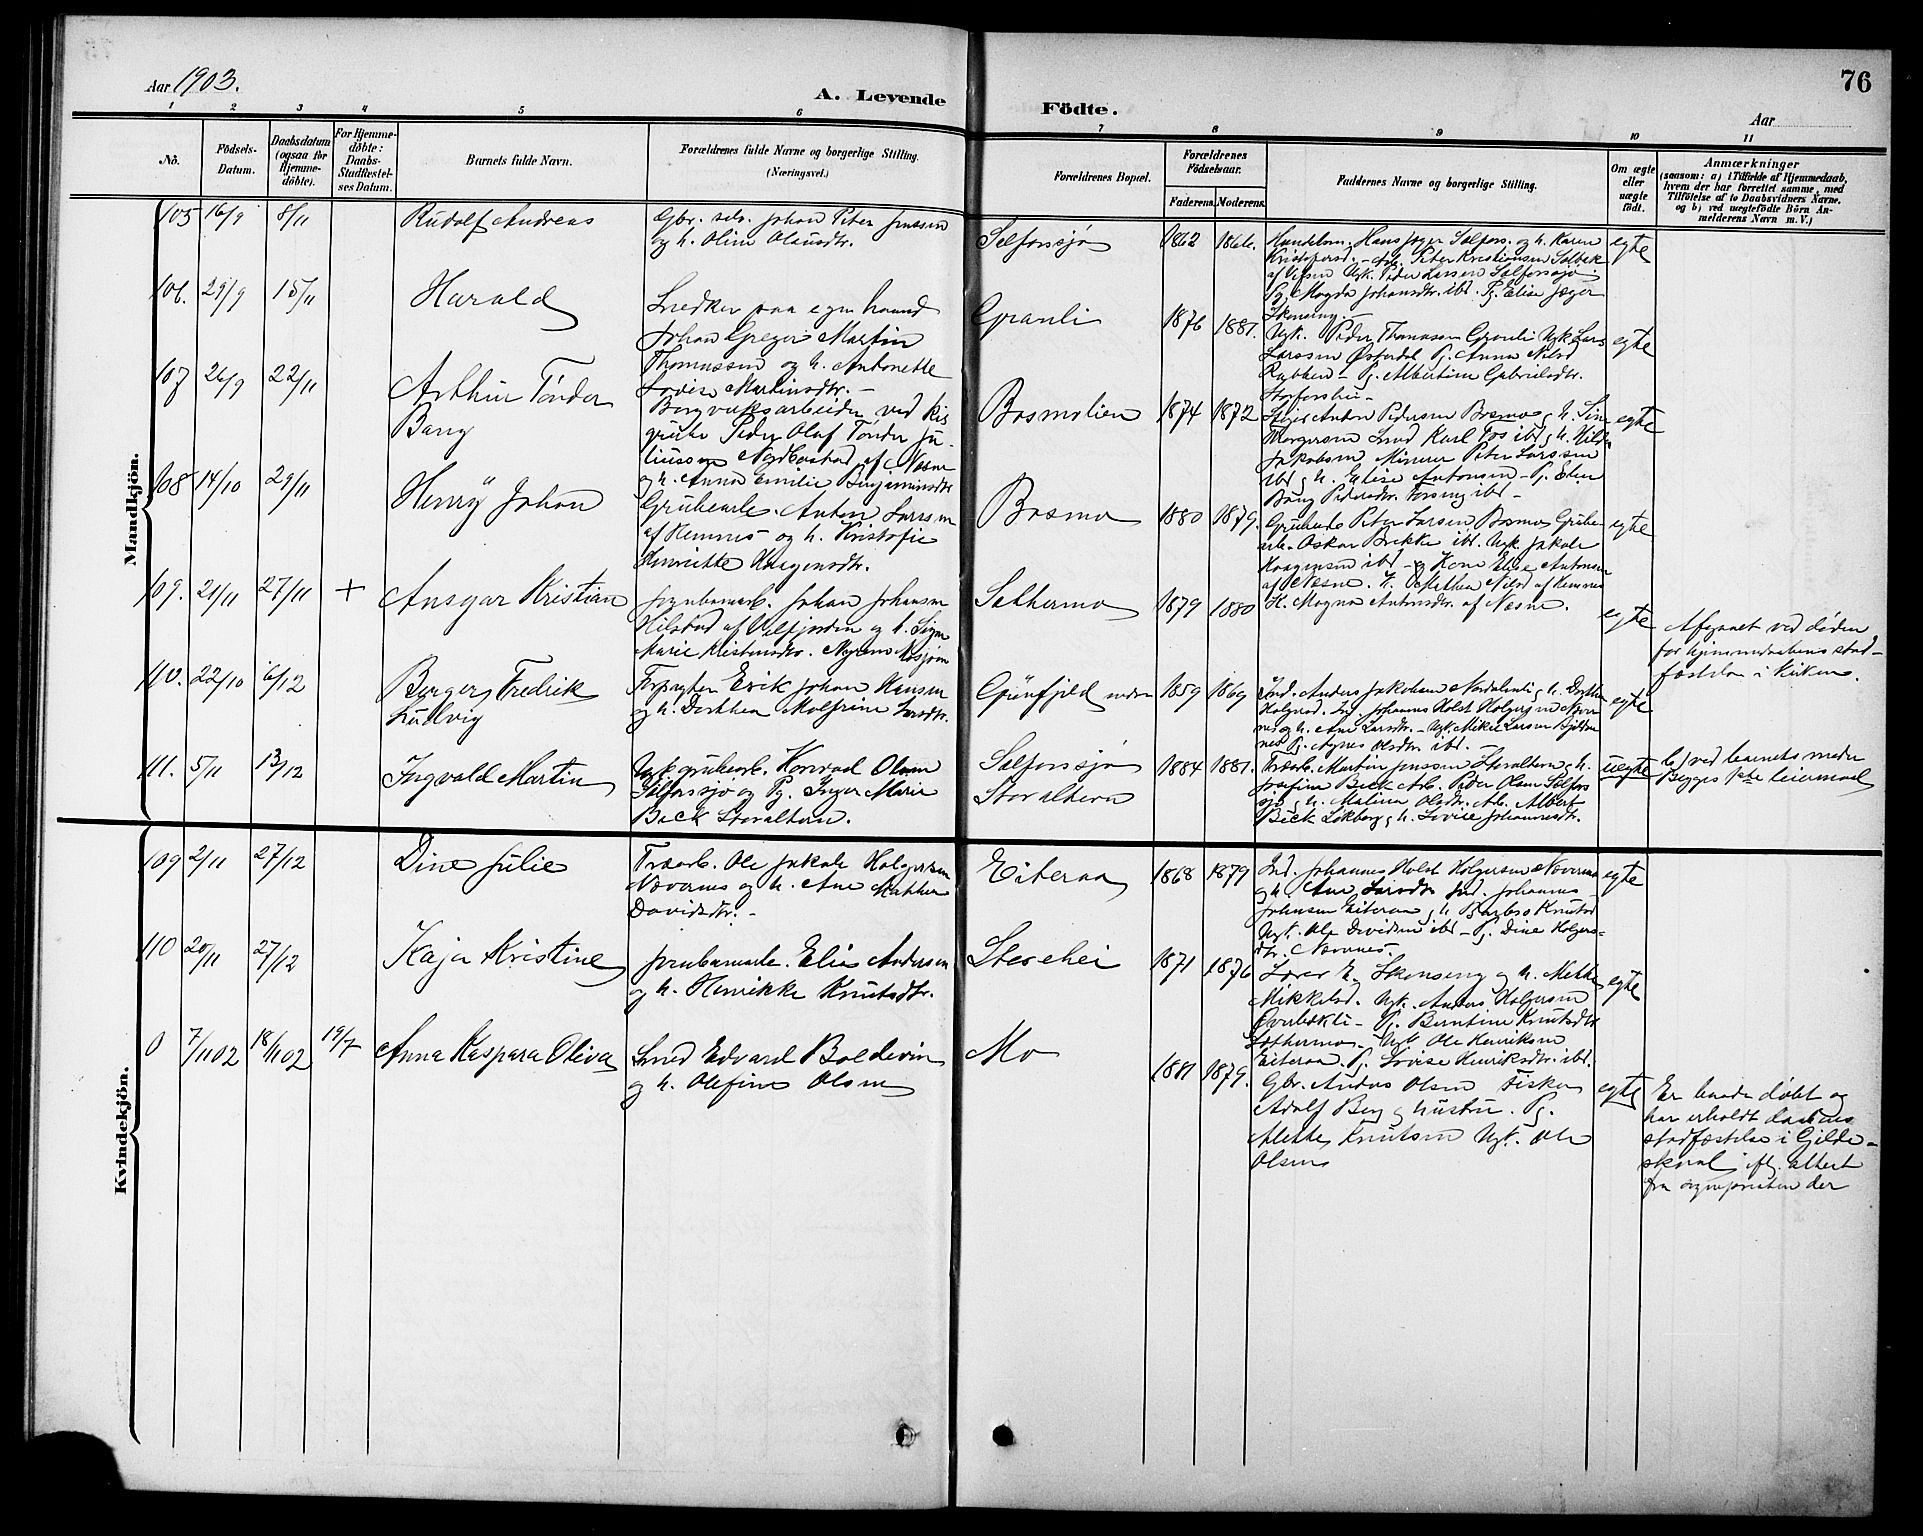 Aar 1903.
A. Levende
Födte.
76
Aar
1 2 3 4 5 6 7 8 9 10 11
No.
Födsels-
Datum.
Daabsdatum
(ogsaa for
Hjemme-
döbte).
For Hjemme-
döbte:
Daabs-
Stadfæstel-
ses Datum.
Barnets fulde Navn.
Forældrenes fulde Navne og borgerlige Stilling.
(Næringsvei.)
Forældrenes Bopæl.
Forældrenes
Födselsaar.
Faderens. Moderens.
Faddernes Navne og borgerlige Stilling.
Om ægte
eller
uægte
födt.
Anmærkninger
(saasom: a) i Tilfælde af Hjemmedaab,
hvem der har forrettet samme, med
Tilföielse af to Daabsvidners Navne.
og b) ved uægtefödte Börn An-
melderens Navn m. V.)
Mandkjön.
105 16/9 8/11
Rudolf Andreas
Gbr. selv. Johan Peter Jenssen
og h. Oline Olausdtr.
Selforssjø
1862 1866.
Handelsm. Hans Jæger Selfors. og h. Karen
Kristofersd. Peter Kristiansen Selbek
af Vefsen Ugk. Peder Larsen Selforssjø.
Pg. Magda Johansdtr. ibd. Pg. Elise Jæger
Skonseng.
egte
106. 29/9 15/11
Harald
Snedker paa egen haand
Johan Greger Martin
Thomassen og h. Antonette
Lovise Martinsdtr. –
Granli
1876 1881.
Ugk. Peder Thomassen Granli Ugk. Lars
Larssen Østerdal Pg. Anna Nilsd
Rabben – Pg. Albertine Gabrielsdtr.
Storforshei –
egte
107 26/9 22/11
Arthur Tönder
Bang
Bergverksarbeider ved kis
grube Peder Olaf Tönder Ju-
liussen af Nesne
og h. Anna Emilie Benjaminsdtr
Bosmolien
1874 1872
Anton Pedersen Bosmo og h. Sine
Morgersen Smed Karl Fos ibd og h. Hilda
Jakobsen Minerer Peter Larssen
ibd og h. Elise Antonsen – Pg. Ellen
Bang Pedersdtr. ibd –
egte
108 14/10 29/11
Henry Johan
Grubearb. Anton Larssen
af Hemnes og h. Kristofie
Henriette Haagensdtr.
Bosmo
1880 1879.
Grubearb Peter Larsen Bosmo, Grube-
arb. Oskar Brekke ibd. Ugk. Jakob
Haagensen ibd – og Kone Elise Antonsen
af Nesne. H. Mathea Nilsd af Hemnes
H. Magna Antonsdtr. af Nesne.
egte
109. 21/11 27/11 +
Ansgar Kristian
Jernbanearb. Johan Johansen
Hilstad af Velfjorden og h. Signe
Marie Kristensdtr. Mosjøen
Selhermo
1879 1880
egte
Afgaaet ved döden
for hjemmedaabens stad-
fæstelse i Kirken.
110. 22/10 6/12
Berger Fredrik
Ludvig
Forpagter Erik Johan Hansen
og h. Dorthea Molfrine Larsdtr.
Grönfjeld nedre
1859 1869
Ind. Anders Jakobsen Nordalenli og h. Dorthea
Holgersd. Ind. Johannes Holst Holgersen Næver-
nes og h. Ane Larsdtr. – Ugk. Mikal Larsen Bjeldau
nes Pg. Agnes Olsdtr ibd. –
egte
111. 5/11 13/12
Ingvald Martin
Ugk. grubearb. Konrad Olsen
Selforssjø og Pg. Inger Marie
Beck Storalteren.
Selforssjø
Storalteren
1884 1881.
Træarb. Martin Jenssen Storalteren, h.
Josefine Beck Arb. Peder Olsen Selfors
sjø og h. Malina Olsdtr. Arb. Albert
Beck Lokberg og h. Lovise Johannesdtr.
uegte
b) ved barnets moder
Begges 1ste leiermaal
Kvindekjön.
109 2/11 27/12
Dine Julie
Træarb. Ole Jakob Holgersen
Nævernes og h. Ane Mathea
Davidsdtr. –
Eiteraa
1868 1879
Ind. Johannes Holst Holgersen Nævernes
og h. Ane Larsdtr Ind. Johannes
Johnsen Eiteraa og h. Barbro Knutsd
Ugk. Ole Davidsen ibd – Pg. Dine Holgers-
dtr. Nævernes –
egte
110 20/11 27/12
Kaja Kristine
Jernbanearb. Elias Andersen
og h. Henrikke Knutsdtr.
Stenhei
1871 1876
Lærer E. Skonseng og h. Mette
Mikkelsd. Ugk. Anders Holgersen
Pg. Berntine Knutsdtr
Ugk Ole Henriksen
Eiteraa. Pg. Lovise Henriksdtr. ibd.
egte
0 7/11 02 18/11 02 19/7
Anna Kaspara Oliva
Smed Edvard Boldevin
og h. Olefine Olsen
Mo
1881 1879.
Gbr. Anders Olsen Fisker
Adolf Berg og hustru. Pg.
Mette Knutsen Ugk. Ole
Olsen
egte
Er baade döbt og
har erholdt daabens
stadfæstelse i Gilde-
skaal iflg. attest
fra sognepresten der